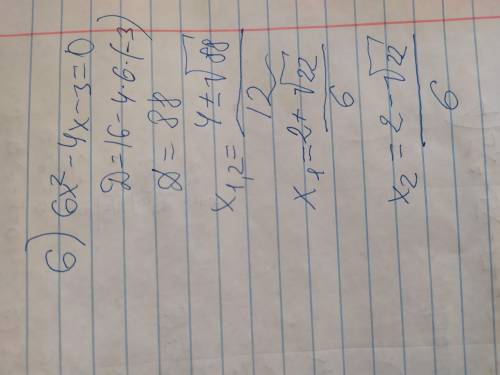 б) 6x² - 4x - 3 = 0
D = 16 - 4·6·(-3)
D = 88
x₁,₂ = (4 ± √88) / 12
x₁ = (2 + √22) / 6
x₂ = (2 - √22) / 6